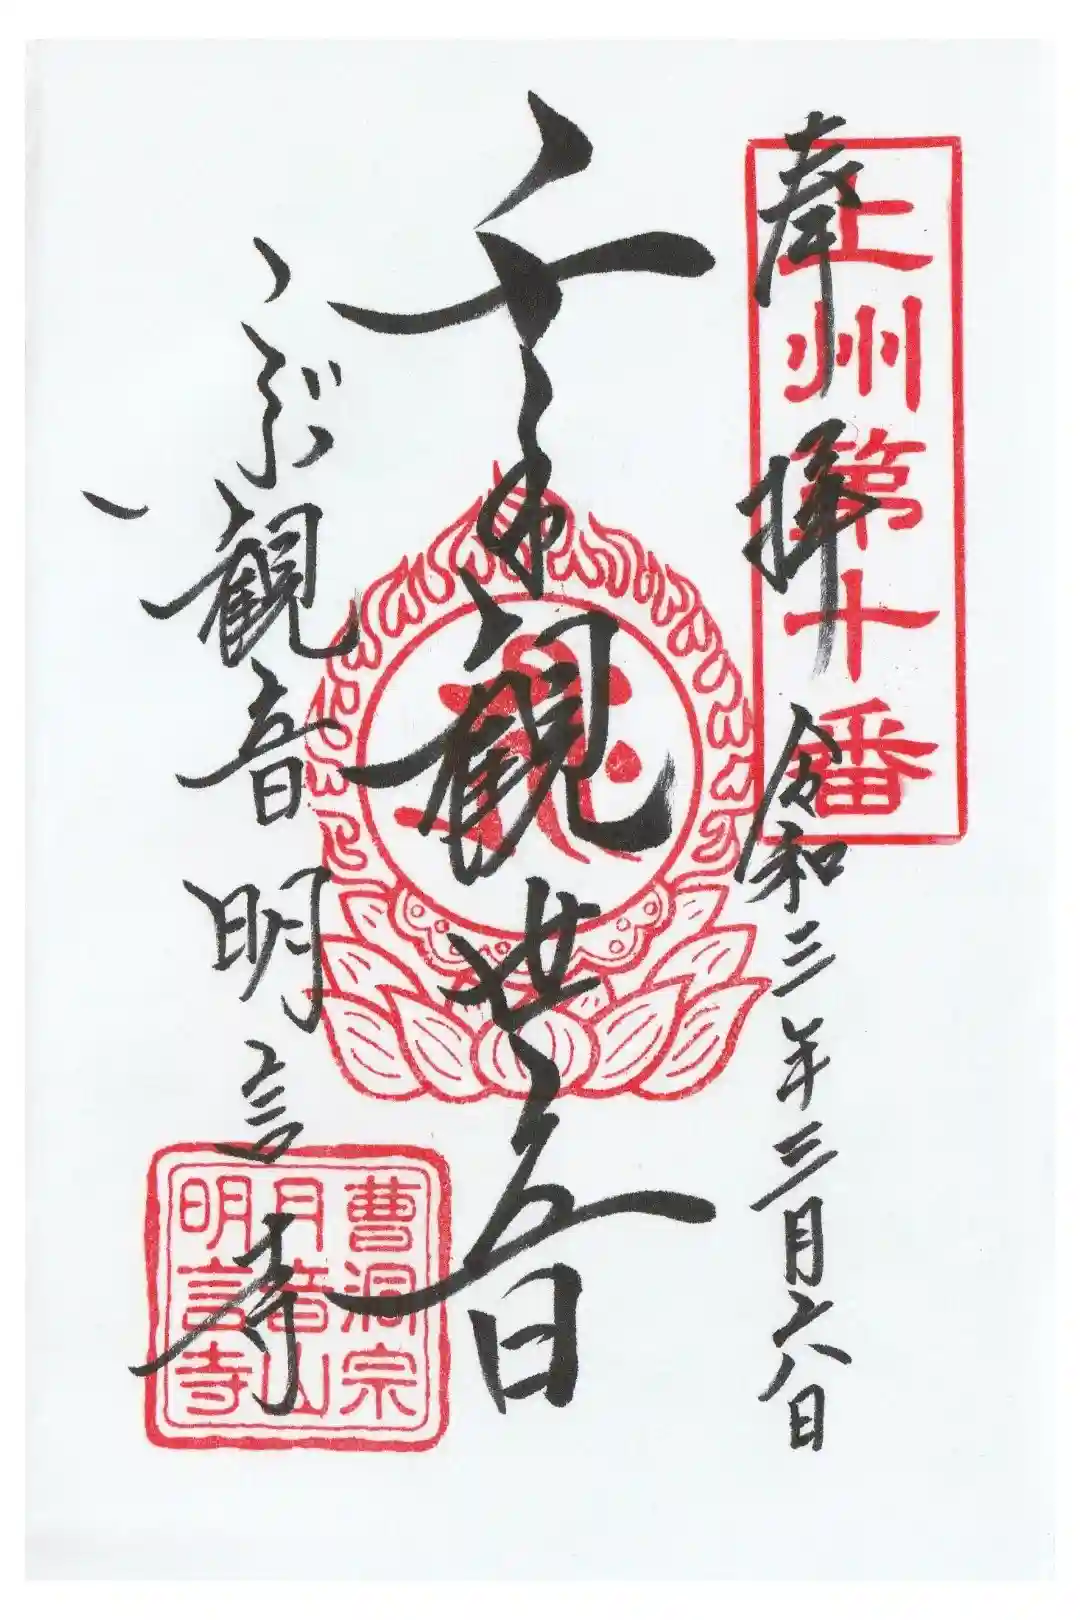 上州第十番
奉拝
令和三年三月六日
千手観世音
観音 明言寺
曹洞宗
月音山
明言寺